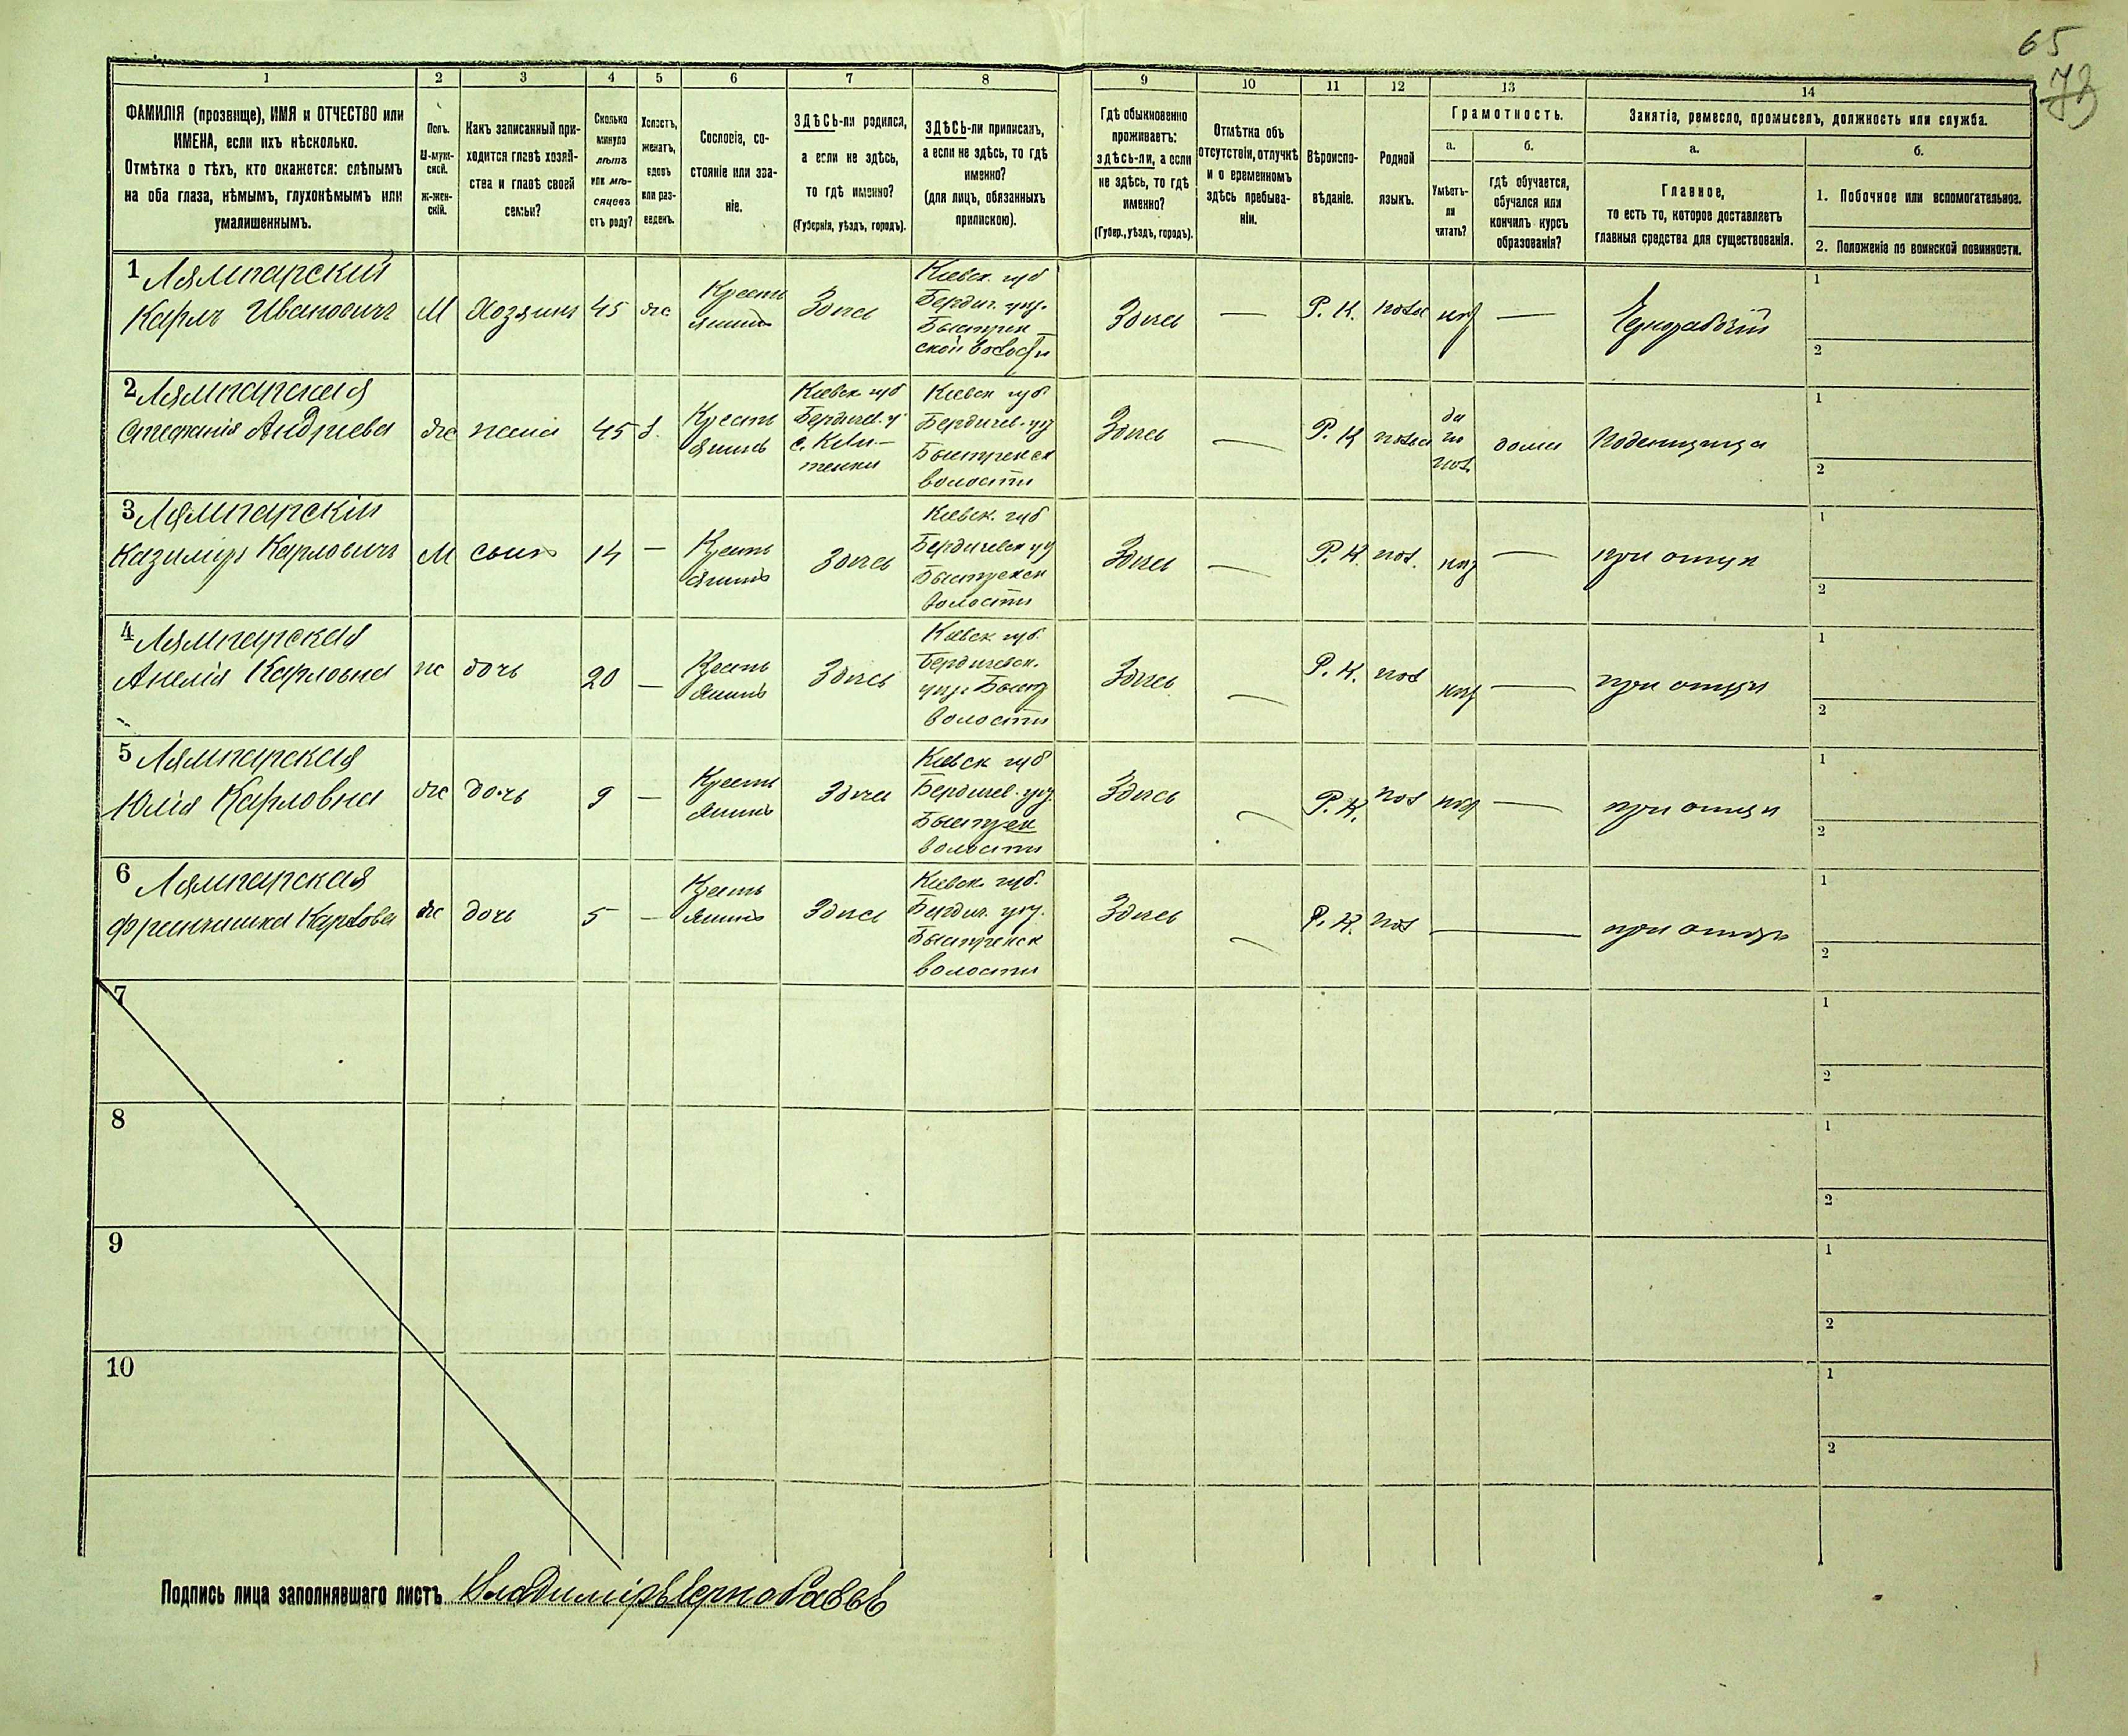 65
73
1
2
3
4
5
6
7
8
9
10
11
12
13
14
ФАМИЛІЯ (прозвище), ИМЯ и ОТЧЕСТВО или
ИМЕНА, если ихъ нѣсколько.
Отмѣтка о тѣхъ, кто окажется: слѣпымъ
на оба глаза, нѣмымъ, глухонѣмымъ или
умалишеннымъ.
Полъ.
М-муж-
ской.
Ж-жен-
скій.
Какъ записанный при-
ходится главѣ хозяй-
ства и главѣ своей
семьи?
Сколько
минуло
лѣтъ
или мѣ-
сяцевъ
отъ роду?
Холостъ,
женатъ,
вдовъ
или раз-
веденъ.
Сословіе, со-
стояніе или зва-
ніе.
ЗДѢСЬ-ли родился,
а если не здѣсь,
то гдѣ именно?
(Губернія, уѣздъ, городъ).
ЗДѢСЬ-ли приписанъ,
а если не здѣсь, то гдѣ
именно?
(для лицъ, обязанныхъ
припискою).
Гдѣ обыкновенно
проживаетъ:
здѣсь-ли, а если
не здѣсь, то гдѣ
именно?
(Губер., уѣздъ, городъ).
Отмѣтка объ
отсутствіи, отлучкѣ
и о временномъ
здѣсь пребыва-
ніи.
Вѣроиспо-
вѣданіе.
Родной
языкъ.
Грамотность.
а.
Умѣетъ-
ли
читать?
б.
гдѣ обучается,
обучался или
кончилъ курсъ
образованія?
Занятіе, ремесло, промыселъ, должность или служба.
а.
Главное,
то есть то, которое доставляетъ
главныя средства для существованія.
б.
1. Побочное или вспомогательное.
2. Положеніе по воинской повинности.
1 Лямпарскій
Карлъ Ивановичъ
М
Хозяинъ
45
ж
Кресть
янинъ
Здѣсь
Кіевск. губ
Бердич. уѣз.
Быстрик
ской волости
Здѣсь
—
Р. К.
польс
нѣт
—
Чернорабочій
1
2
2 Лямпарская
Стефанія Андреева
ж
жена
45
з.
Кресть
янинъ
Кіевск губ
Бердичев. у
Кіевск губ
Бердичев. уѣз
Быстриск
волости
Здѣсь
—
Р. К
польс
да
по
пол.
дома
Поденщица
1
2
3 Лямпарскій
Казимиръ Карловичъ
М
сынъ
14
—
Кресть
янинъ
Здѣсь
Кіевск. губ
Бердичевск уѣз
Быстрикск
волости
Здѣсь
—
Р. К.
пол.
нѣт
—
при отцѣ
1
2
4 Лямпарская
Анелія Карловна
ж
дочь
20
—
Кресть
янинъ
Здѣсь
Кіевск губ.
Бердичевск.
уѣз. Быстр
волости
Здѣсь
—
Р. К.
пол
нѣт
—
при отцѣ
1
2
5 Лямпарская
Юлія Карловна
ж
дочь
9
—
Кресть
янинъ
Здѣсь
Кіевск губ
Бердичев. уѣз.
Быстрик
волости
Здѣсь
—
Р. К.
пол
нѣт
—
при отцѣ
1
2
6 Лямпарская
Францишка Карлова
ж
дочь
5
—
Кресть
янинъ
Здѣсь
Кіевск. губ.
Бердич. уѣз.
Быстрикск
волости
Здѣсь
—
Р. К.
пол
—
при отцѣ
1
2
7
1
2
8
1
2
9
1
2
10
1
2
Подпись лица заполнявшаго листъ Владиміръ